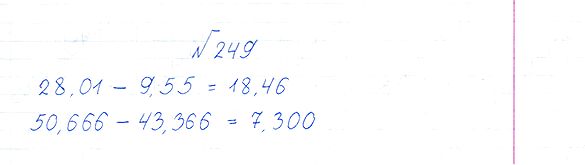 № 249
28,01 - 9,55 = 18,46
50,666 - 43,366 = 7,300